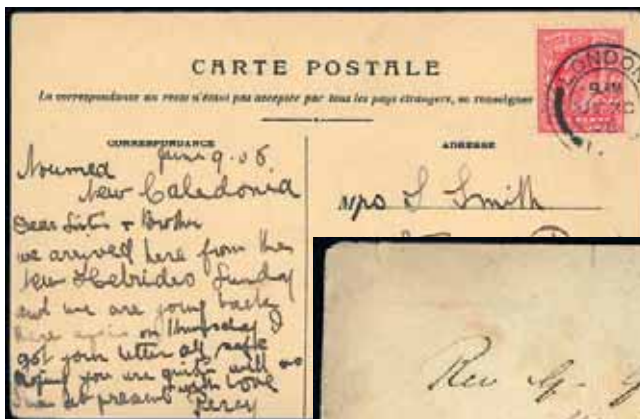 CARTE POSTALE
La correspondance au recto n'étant pas acceptée par tous les pays étrangers, se renseigner
CORRESPONDANCE
ADRESSE
LONDON
Noumea June 9.08
New Caledonia
Dear Sister + Brother
we arrived here from the
New Hebrides Sunday
and we are going back
there again on Thursday I
got your letter all safe
hoping you are quite well as
I am at present with Love
Percy
Mrs Smith
Rev G.